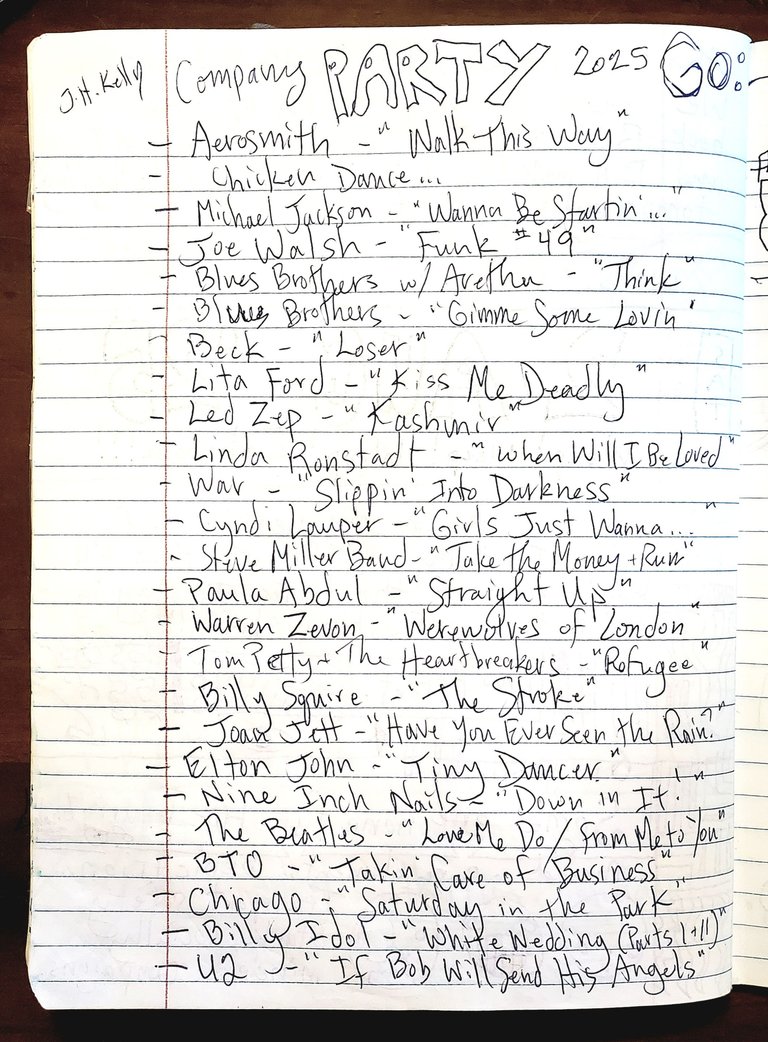 J.H. Kelly Company PARTY 2025 GO:
- Aerosmith - "Walk This Way"
- Chicken Dance...
- Michael Jackson - "Wanna Be Startin'..."
- Joe Walsh - "Funk #49"
- Blues Brothers w/ Aretha - "Think"
- Blues Brothers - "Gimme Some Lovin"
- Beck - "Loser"
- Lita Ford - "Kiss Me Deadly"
- Led Zep - "Kashmir"
- Linda Ronstadt - "When Will I Be Loved"
- War - "Slippin' Into Darkness"
- Cyndi Lauper - "Girls Just Wanna..."
- Steve Miller Band - "Take the Money + Run"
- Paula Abdul - "Straight Up"
- Warren Zevon - "Werewolves of London"
- Tom Petty + The Heartbreakers - "Refugee"
- Billy Squire - "The Stroke"
- Joan Jett - "Have You Ever Seen the Rain?"
- Elton John - "Tiny Dancer"
- Nine Inch Nails - "Down in It!"
- The Beatles - "Love Me Do / From Me to You"
- BTO - "Takin' Care of Business"
- Chicago - "Saturday in the Park"
- Billy Idol - "White Wedding (Parts I + II)"
- U2 - "If Bob Will Send His Angels"